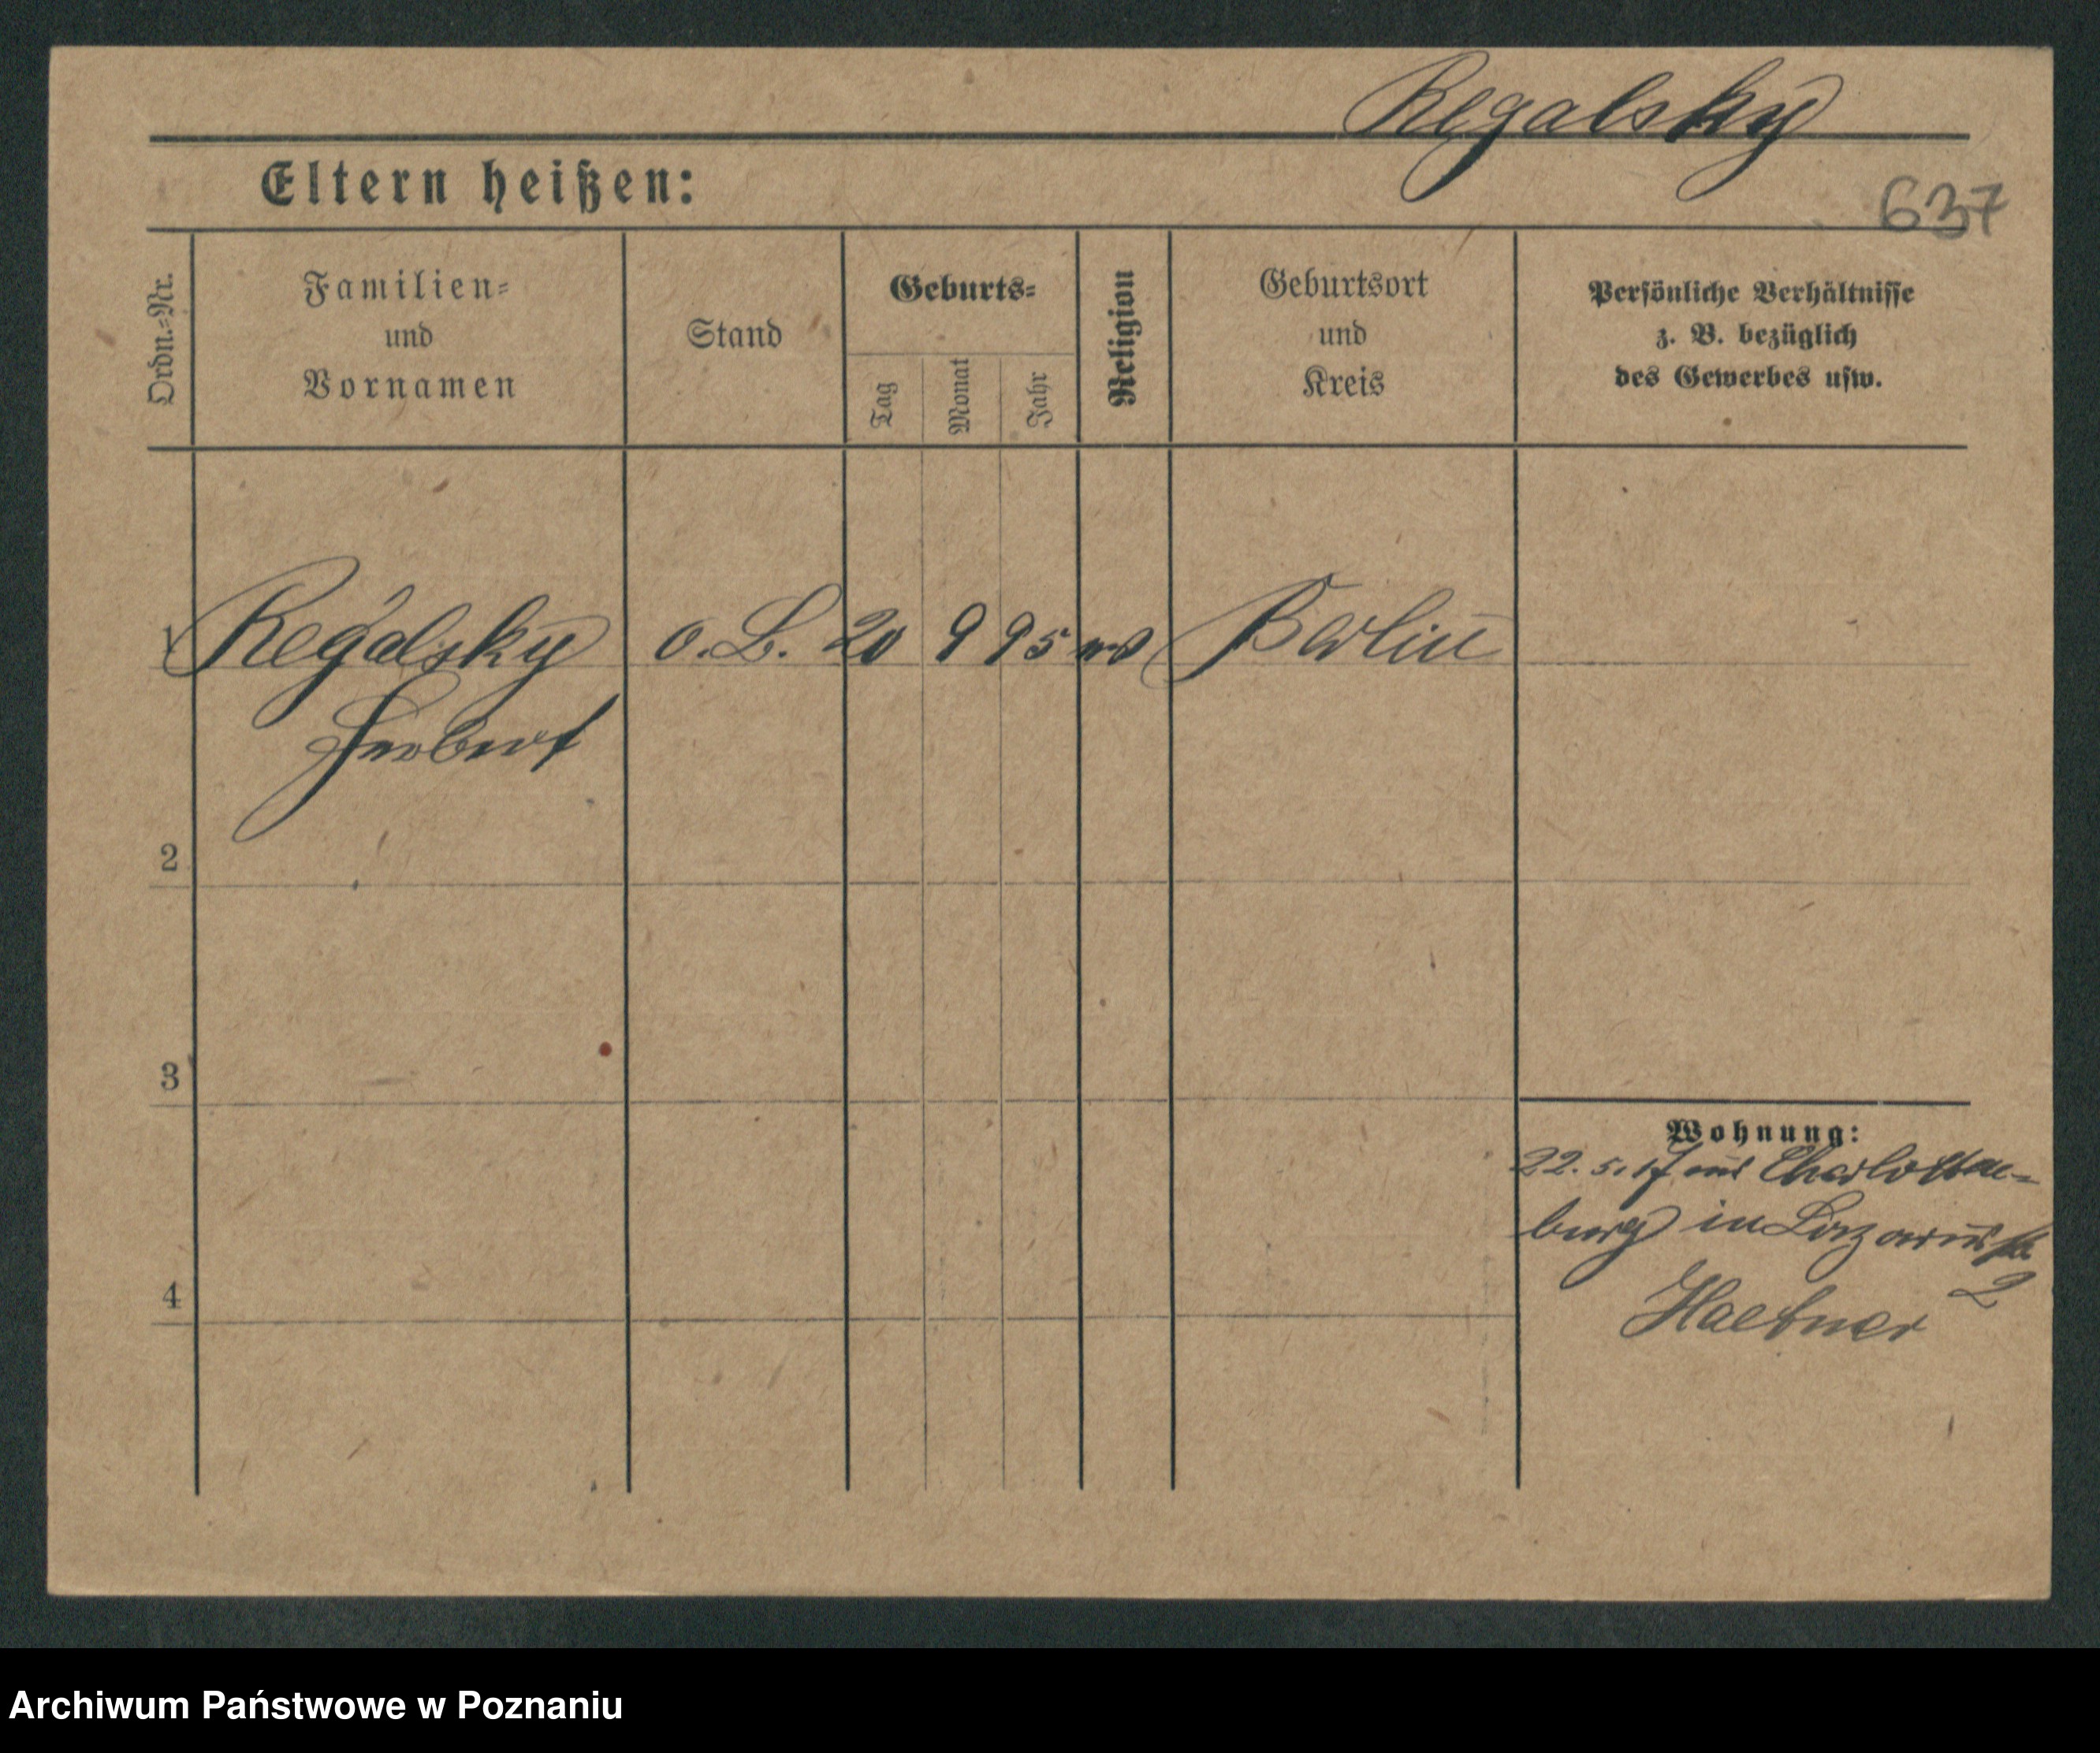 Regalsky
Eltern heißen:
637
Ordn.=Nr.
Familien=
und
Vornamen
Stand
Geburts=
Tag
Monat
Jahr
Religion
Geburtsort
und
Kreis
Persönliche Verhältnisse
z. B. bezüglich
des Gewerbes usw.
1 Regalsky o. L. 20 9 95 Berlin
Herbert
2
3
4
Wohnung:
22. 5. 17 aus Charlotten-
burg in Lazarusstr.
2
Haebner
Archiwum Państwowe w Poznaniu